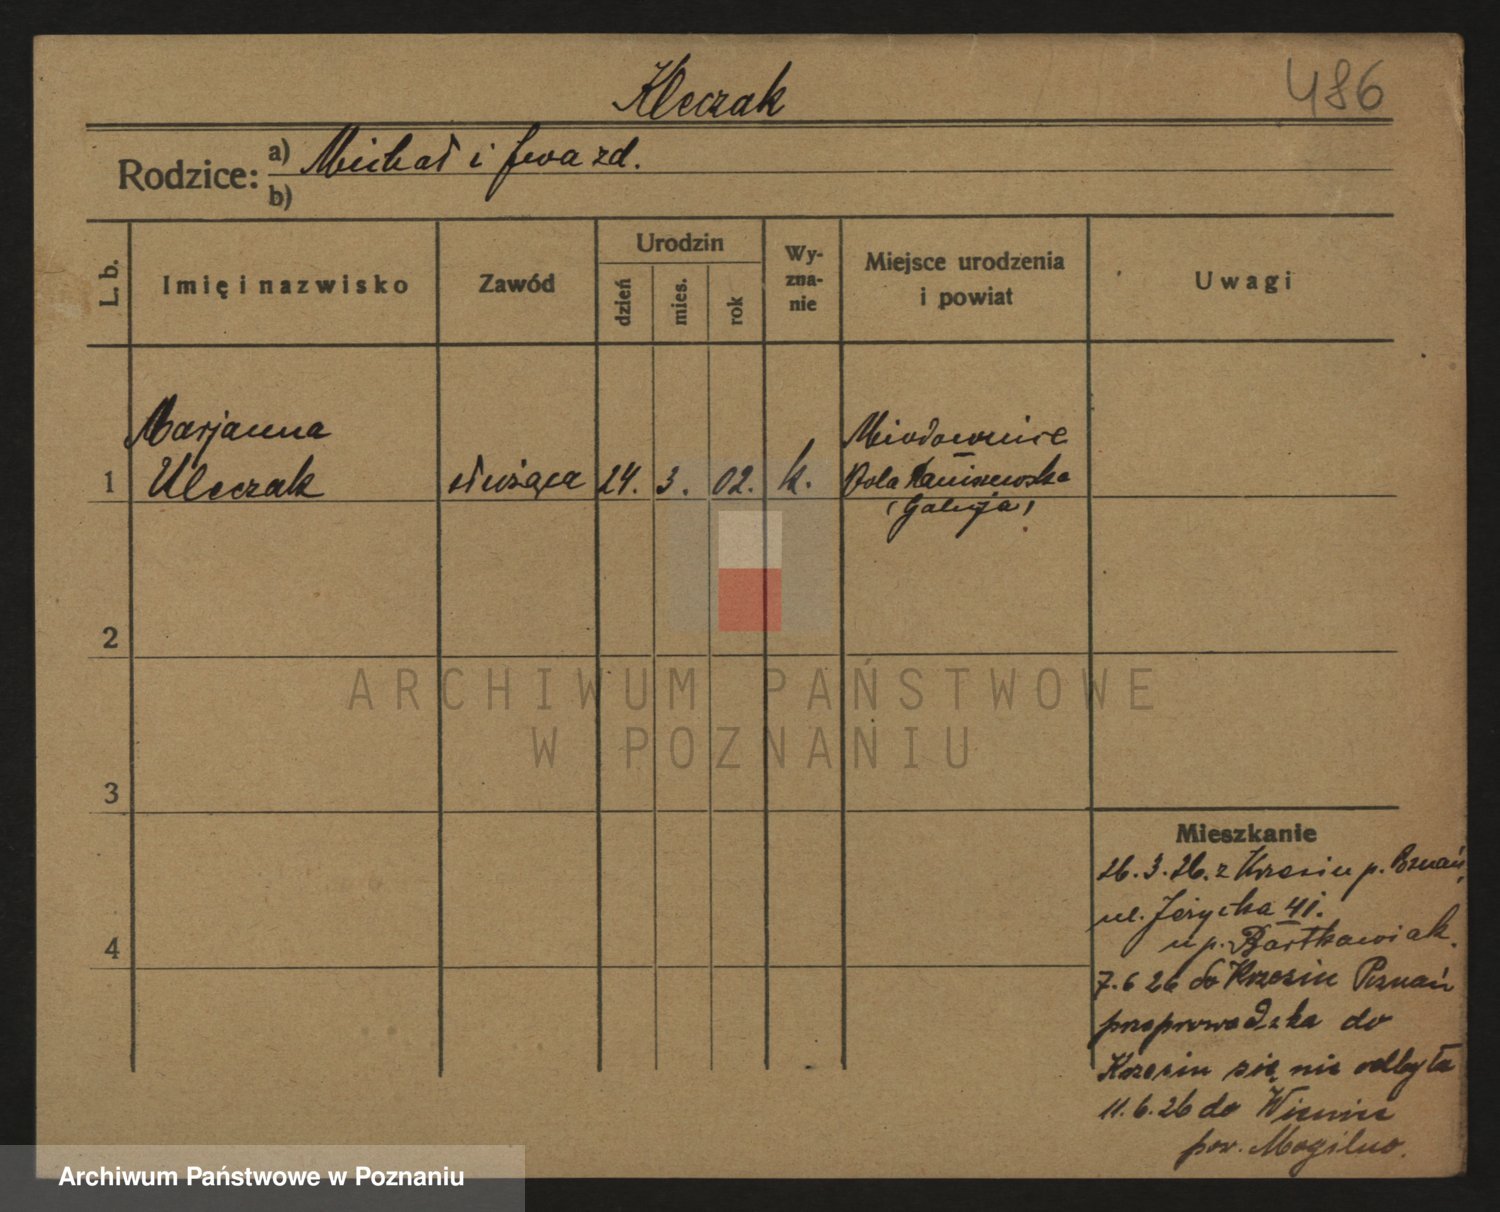 486
Kleczak
Rodzice:
a) Michał i Ewa zd.
b)
L. b.
Imię i nazwisko
Zawód
Urodzin
dzień
mies.
rok
Wy-
zna-
nie
Miejsce urodzenia
i powiat
Uwagi
1
Marjanna
Kleczak
służąca
24.
3.
02.
k.
Miodownice
Wola Raniszewska
(Galicja)
2
3
4
Mieszkanie
26.3.26. z Krzesin p. Poznań
ul. Jeżycka 41.
u p. Bartkowiak.
7.6 26 do Krzesin Poznań
przeprowadzka do
Krzesin się nie odbyła
11.6.26 do
pow. Mogilno.
ARCHIWUM PAŃSTWOWE
W POZNANIU
Archiwum Państwowe w Poznaniu